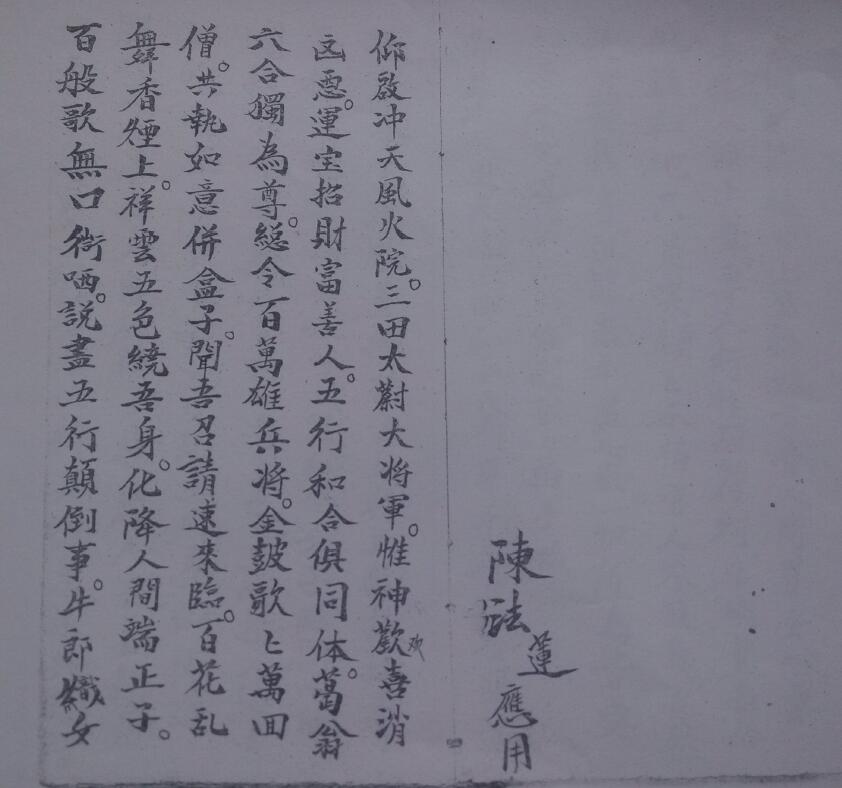 陳法蓮應用
仰啟冲天風火院。三田太蔚大将軍。惟神歡喜消
凶惡。運宝招財富善人。五行和合俱同体。葛翁
六合獨為尊。総令百萬雄兵将。金皷歌〻萬回
僧。共執如意併盒子。聞吾召請速來臨。百花乱
舞香煙上。祥雲五色繞吾身。化降人間端正子。
百般歌無口衕哂。説盡五行顛倒事。牛郎織女